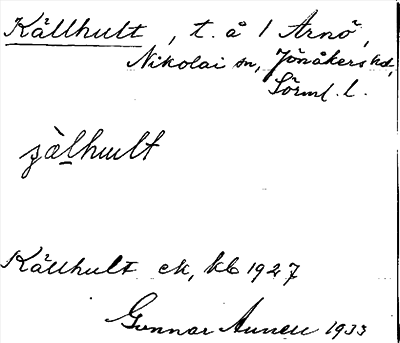 Källhult, t. å 1 Arnö,
Nikolai sn, Jönåkers hd,
Sörml. l.
ʒàlhuult
Källhult ek, kb 1927
Gunnar 1933